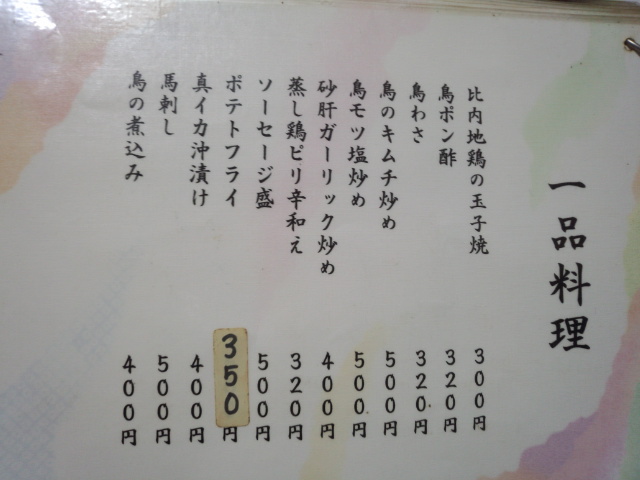 一品料理
比内地鶏の玉子焼 300円
鳥ポン酢 320円
鳥わさ 320円
鳥のキムチ炒め 500円
鳥モツ塩炒め 500円
砂肝ガーリック炒め 400円
蒸し鶏ピリ辛和え 320円
ソーセージ盛 500円
ポテトフライ 350円
真イカ沖漬け 400円
馬刺し 500円
鳥の煮込み 400円